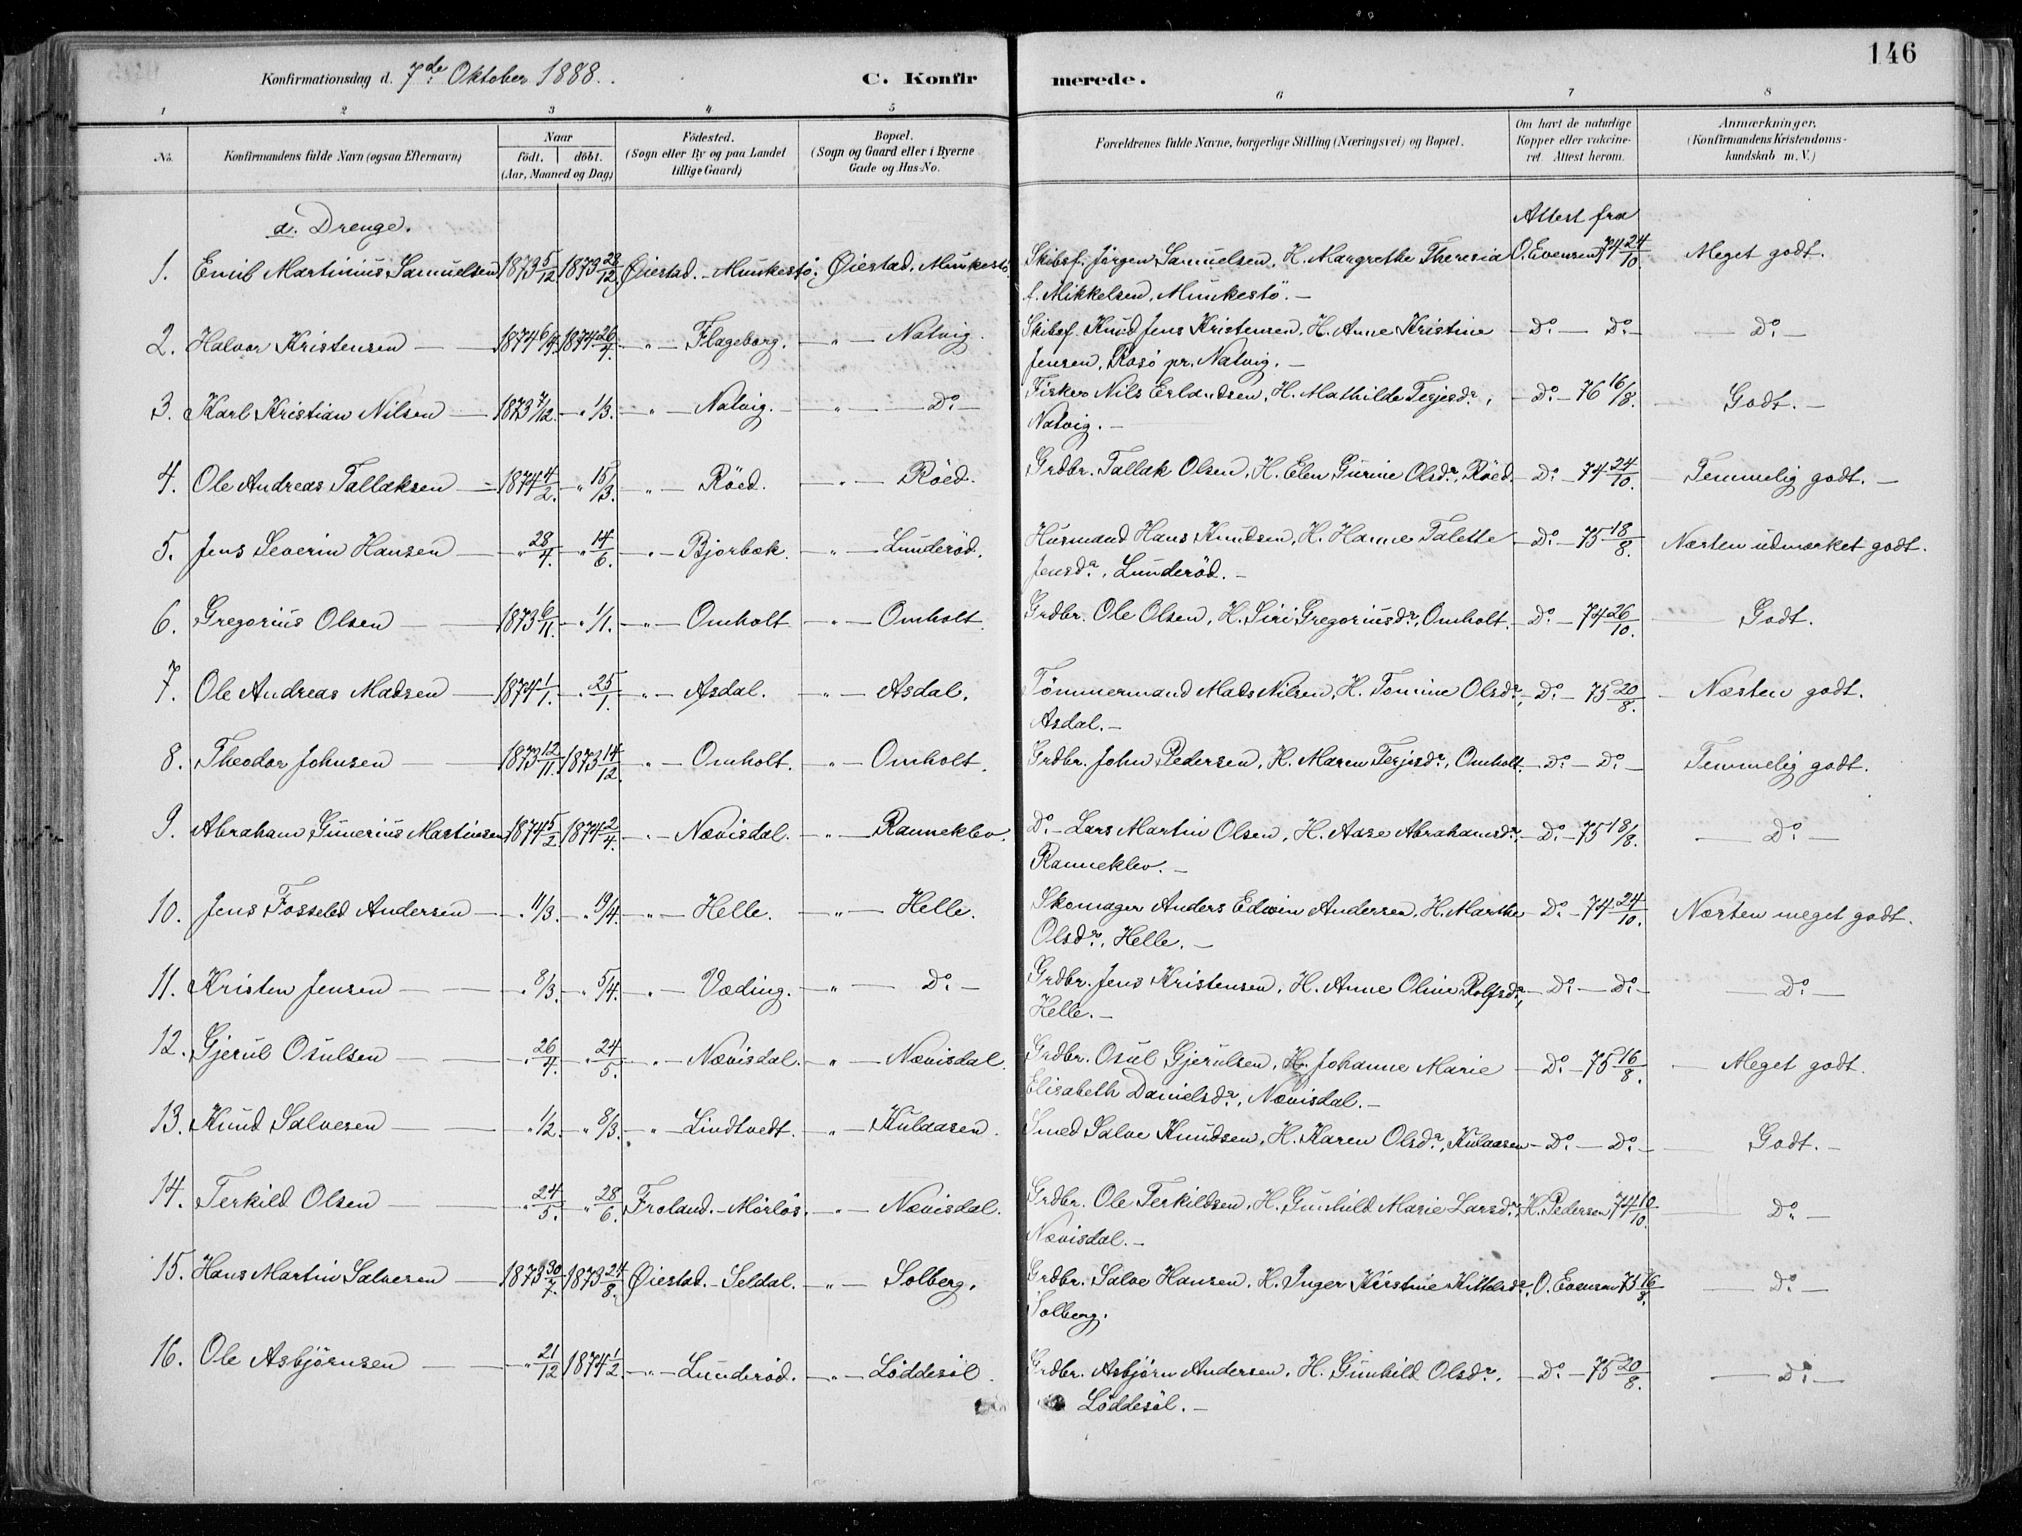 146
Konfirmationsdag d. 7de Oktober 1888. C. Konfirmerede.
1 2 3 4 5 6 7 8
No. Konfirmandens fulde Navn (ogsaa Efternavn) Naar födt. döbt. (Aar, Maaned og Dag) Födested. (Sogn eller By og paa Landet tillige Gaard) Bopæl. (Sogn og Gaard eller i Byerne Gade og Hus-No. Forældrenes fulde Navne, borgerlige Stilling (Næringsvei) og Bopæl. Om havt de naturlige Kopper eller vakcineret. Attest herom. Anmærkninger. (Konfirmandens Kristendomskundskab m. V.)
a. Drenge. Attest fra
1. Emil Martinius Samuelsen 1873 5/12 1873 28/12 Øiestad. - Munkestö. Øiestad. Munkestö Skibsf. Jörgen Samuelsen, H. Margrethe Theresia O. Evensen 74 24/10. Meget godt.
f. Mikkelsen, Munkestö. -
2. Halvor Kristensen 1874 6/4 1874 26/4. - " - Flageborg. - " - Natvig. Skibsf. Knud Jens Kristensen, H. Anne Kristine - Do - Do - - Do -
Jensen, Rosö pr. Natvig. -
3. Karl Kristian Nilsen 1873 7/12. - " 1/3. - " - Natvig. - " - Do - Fisker Nils Erlandsen, H. Mathilde Terjesdr, - Do - 76 16/8. Godt. -
Natvig. -
4. Ole Andreas Tallaksen 1874 4/2. - " 15/3. - " - Röed. - " - Röed. Grdbr. Tallak Olsen, H. Elen Gurine Olsdr, Röed. - Do - 74 24/10. Temmelig godt. -
5. Jens Severin Hansen - " 28/4. - " 14/6. - " - Bjorbæk. - " - Lunderöd. Husmand Hans Knudsen, H. Hanne Talette - Do - 75 18/8. Næsten udmærket godt.
Jensdr, Lunderöd. -
6. Gregorius Olsen 1873 6/11. - " 1/1. - " - Omholt - " - Omholt. Grdbr. Ole Olsen, H. Siri Gregoriusdr, Omholt. - Do - 74 26/10. Godt.
7. Ole Andreas Madsen 1874 1/1. - " 25/1. - " - Asdal. - " - Asdal. Tömmermand Mads Nilsen, H. Tomine Olsdr, - Do - 75 20/8. - Næsten godt.
Asdal. -
8. Theodor Johnsen 1873 12/11. 1873 14/12. - " - Omholt. - " - Omholt. Grdbr. John Pedersen, H. Maren Terjesdr, Omholt. - Do - Do - Temmelig godt.
9. Abraham Gunerius Martinsen 1874 5/2 1874 2/4. - " - Nævisdal. - " - Ranneklev. Do - Lars Martin Olsen, H. Aase Abrahamsdr, - Do - 75 18/8. - Do -
Ranneklev. -
10. Jens Andersen - " 11/3. - " 19/4. - " - Helle. - " - Helle. Skomager Anders Edwin Andersen, H. Marthe - Do - 74 24/10. Næsten meget godt.
Olsdr, Helle. -
11. Kristen Jensen - " 8/3. - " 5/4. - " - Væding. - " - Do - Grdbr. Jens Kristensen, H. Anne Oline Rolfsdr, - Do - Do - - Do -
Helle. -
12. Gjerul Osulsen - " 26/4. - " 24/5. - " - Nævisdal. - " - Nævisdal. Grdbr. Osul Gjerulsen, H. Johanne Marie - Do - 75 16/8. - Meget godt.
Elisabeth Danielsdr, Nævisdal. -
13. Knud Salvesen - " 1/2. - " 8/3. - " - Lindtvedt. - " - Kulaasen. Smed Salve Knudsen, H. Karen Olsdr, Kulaasen - Do - Do - Godt. -
14. Terkild Olsen - " 24/5. - " 28/6. Froland. - Mörlös. - " - Nævisdal. Grdbr. Ole Terkildsen, H. Gunhild Marie Larsdr, H. Pedersen 74 10/10. - Do -
Nævisdal. -
15. Hans Martin Salvesen 1873 30/7. 1873 24/8. Øiestad. - Seldal. - " - Solberg. Grdbr. Salve Hansen, H. Inger Kirstine Kittelsdr, O. Evensen 75 16/8. - Do -
Solberg.
16. Ole Asbjörnsen - " 21/12 1874 1/2. - " - Lunderöd. - " - Löddesöl. Grdbr. Asbjörn Andersen, H. Gunhild Olsdr, - Do - 75 20/8. - Do -
Löddesöl. -